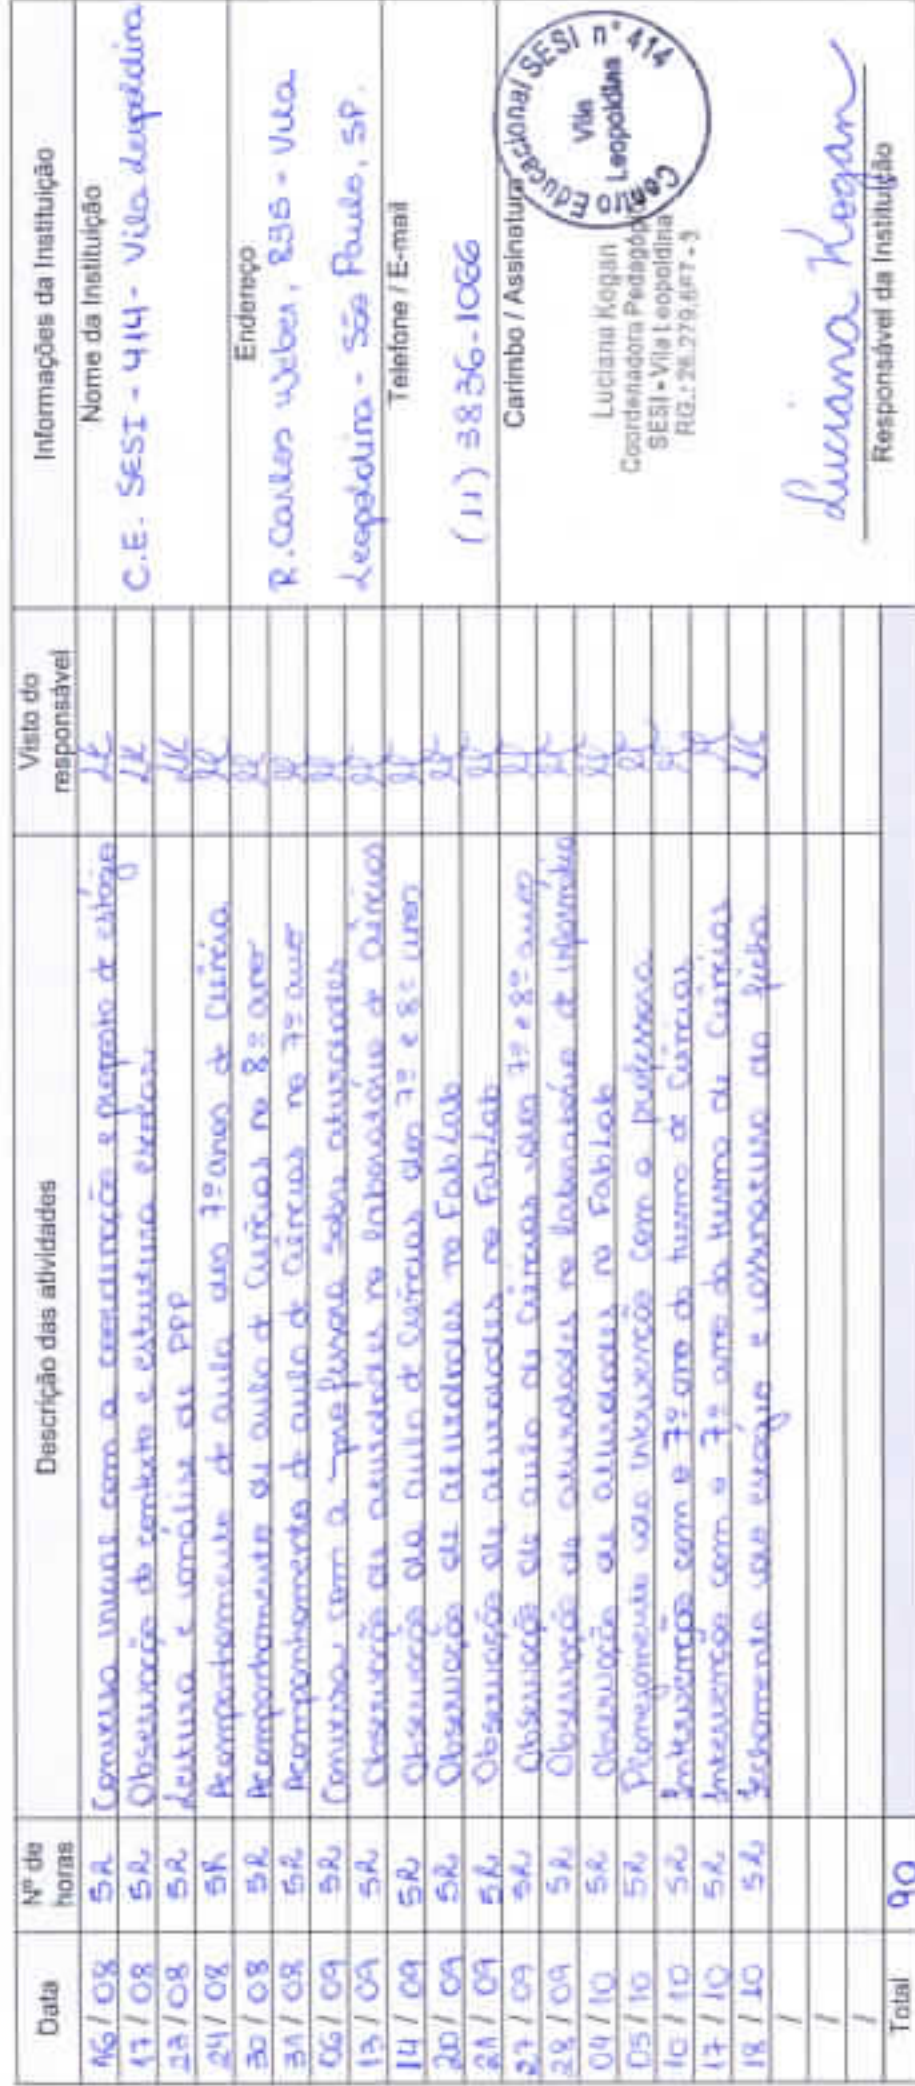 Data
Nº de
horas
Descrição das atividades
Visto do
responsável
Informações da Instituição
16 / 08 5h Conversa inicial com a coordenação e proposta de estágio LK
17 / 08 5h Observação do contexto e estrutura escolar LK
23 / 08 5h Leitura e análise do PPP LK
24 / 08 5h Acompanhamento de aula dos 7º anos de Ciência LK
30 / 08 5h Acompanhamento de aula de Ciências no 8º ano LK
31 / 08 5h Acompanhamento de aula de Ciências no 7º ano LK
06 / 09 5h Conversa com a professora sobre atividades LK
13 / 09 5h Observação de atividades no laboratório de Ciências LK
14 / 09 5h Observação da aula de Ciências dos 7º e 8º anos LK
20 / 09 5h Observação de atividades no FabLab LK
21 / 09 5h Observação de atividades no FabLab LK
27 / 09 5h Observação de aula de Ciências dos 7º e 8º anos LK
28 / 09 5h Observação de atividades no laboratório de informática LK
04 / 10 5h Observação de atividades no FabLab LK
05 / 10 5h Planejamento da intervenção com a professora LK
10 / 10 5h Intervenção com o 7º ano da turma de Ciências LK
17 / 10 5h Intervenção com o 7º ano da turma de Ciências LK
18 / 10 5h Fechamento do estágio e assinatura da ficha LK
/
/
/
Total 90
Nome da Instituição
C.E. SESI - 414 - Vila Leopoldina
Endereço
R. Carlos Weber, 835 - Vila
Leopoldina - São Paulo, SP.
Telefone / E-mail
(11) 3836-1066
Carimbo / Assinatura
Centro Educacional SESI nº 414
Vila
Leopoldina
Luciana Kogan
Coordenadora Pedagóg
SESI - Vila Leopoldina
RG.: 26.279.657-3
Luciana Kogan
Responsável da Instituição